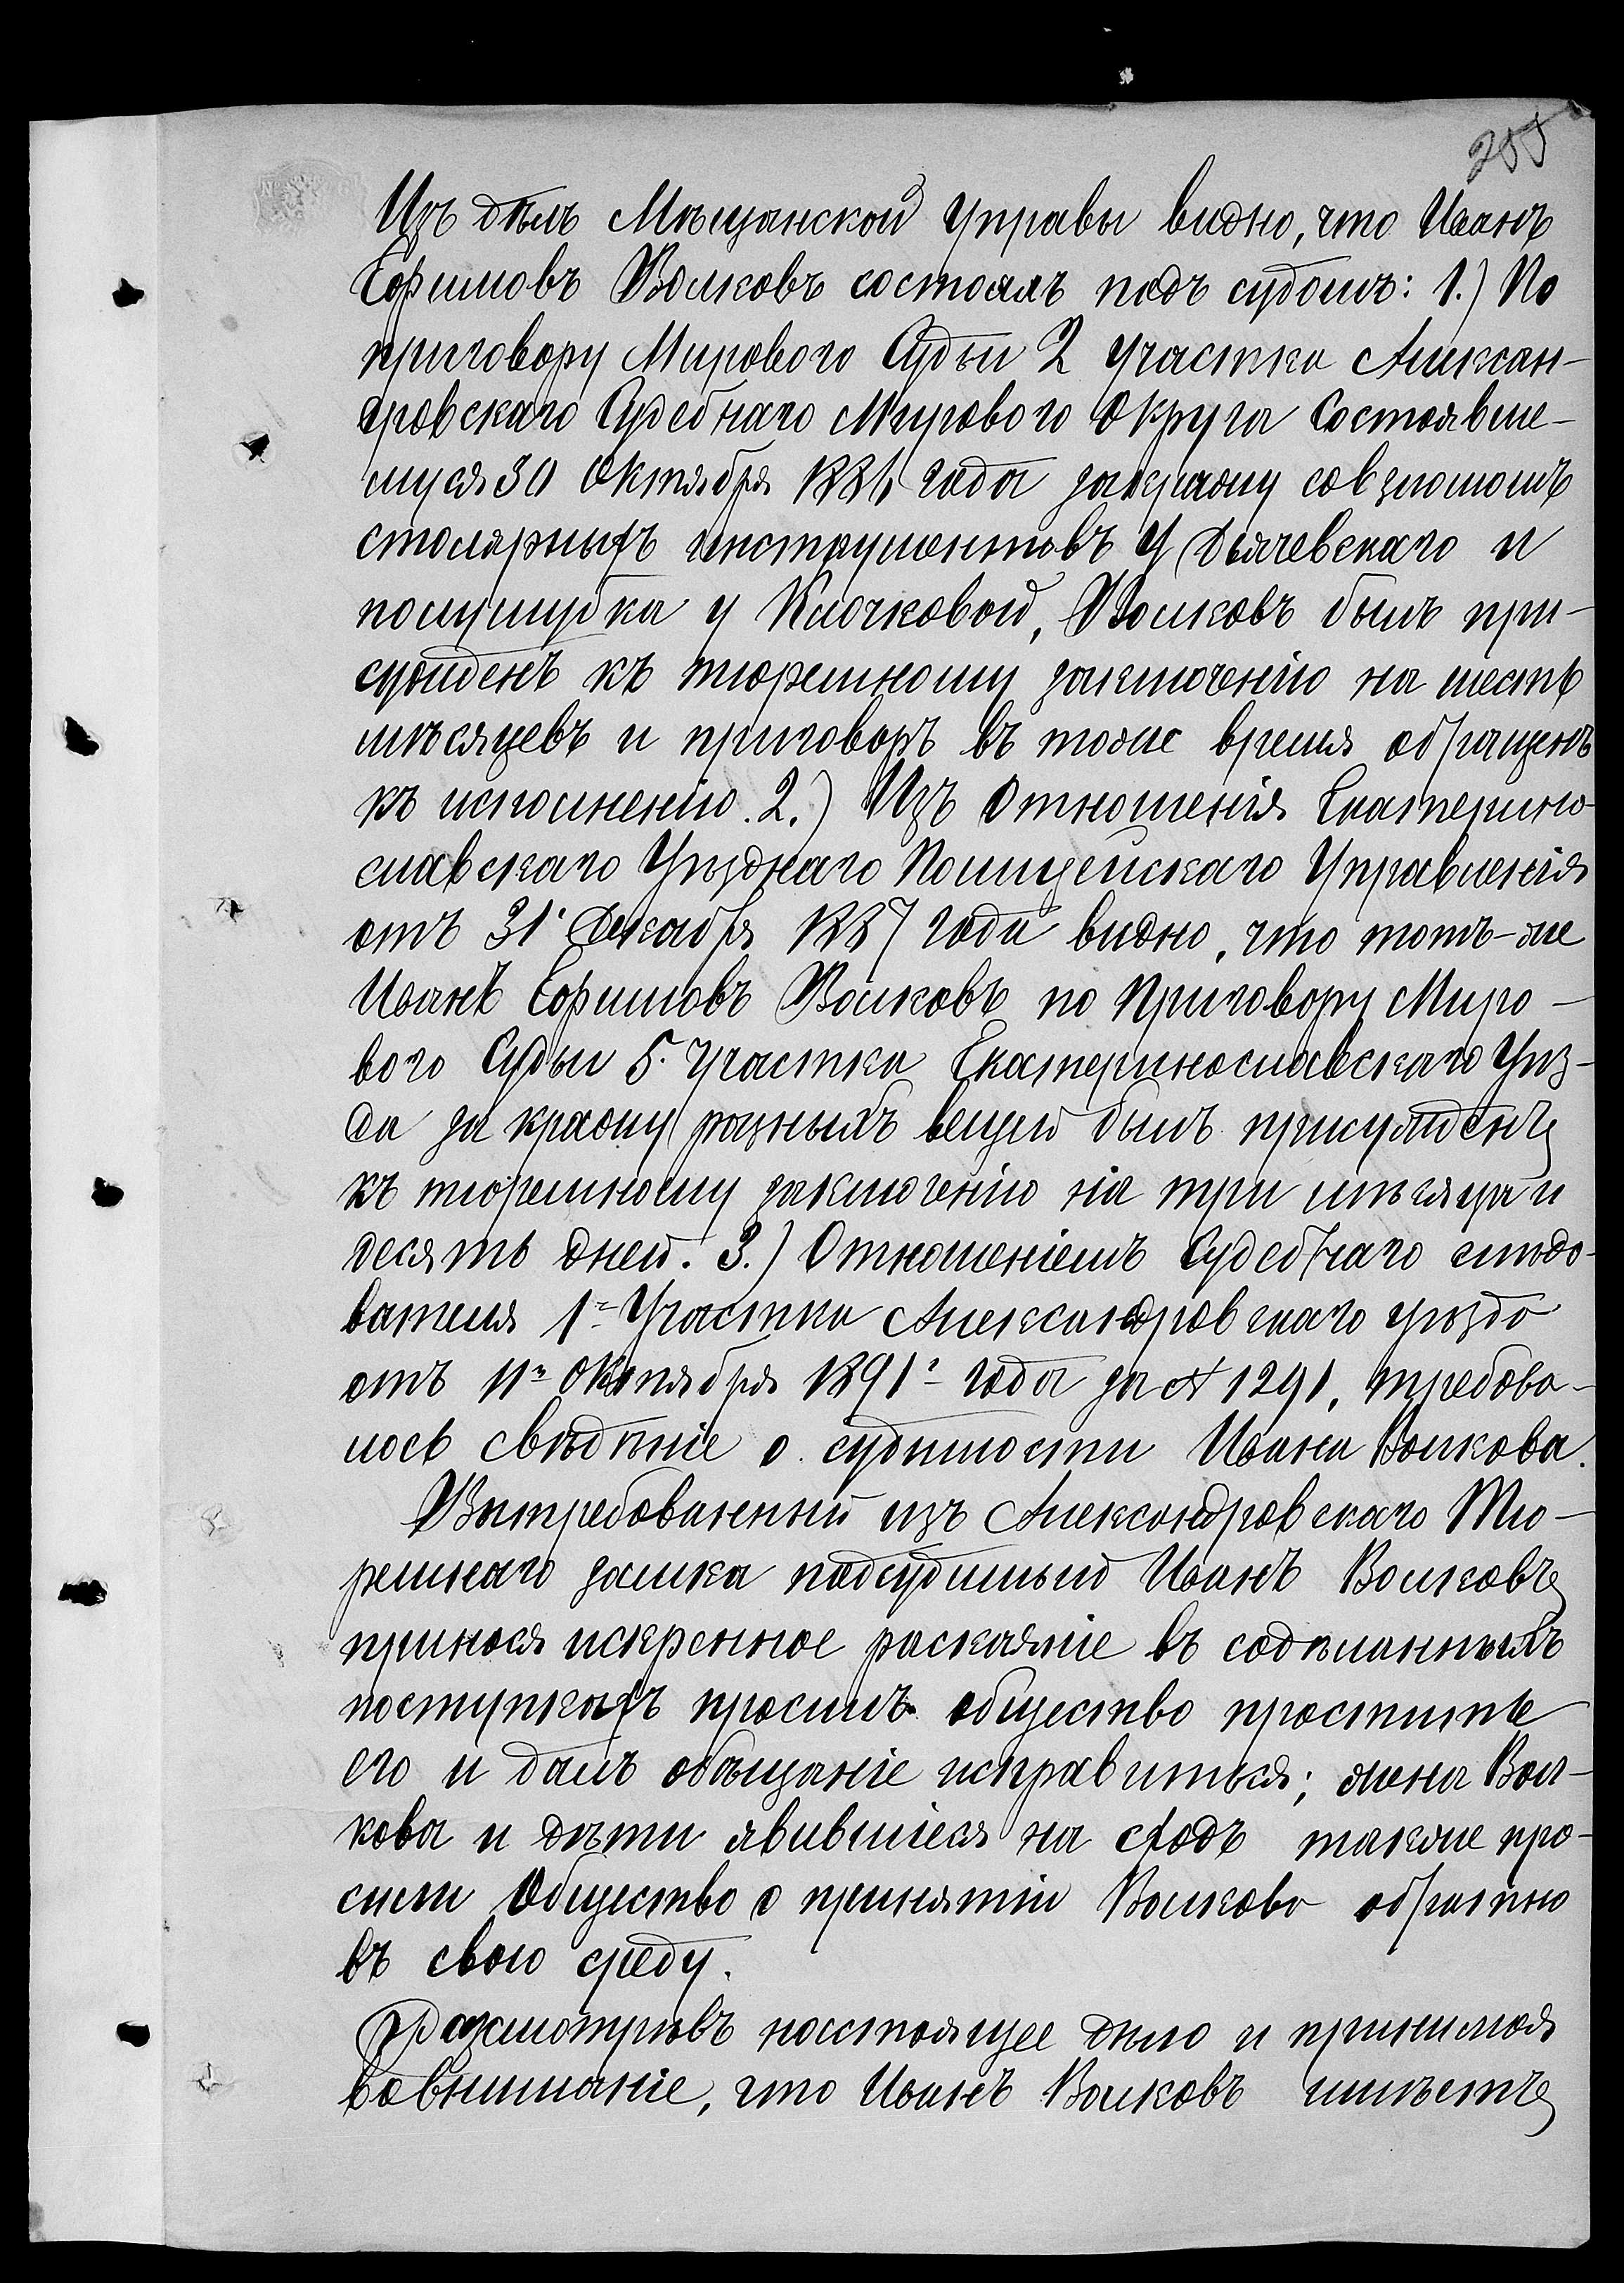 255
Изъ дѣлъ Мѣщанской Управы видно, что Иванъ
Ефимовъ Волковъ состоялъ подъ судомъ: 1.) По
приговору Мирового Судьи 2 участка Алексан-
дровскаго Судебнаго Мирового Округа состоявше-
муся 30 Октября 1881 года за кражу со взломомъ
столярныхъ инструментовъ у Дьячевскаго и
полушубка у Клочковой, Волковъ былъ при-
сужденъ къ тюремному заключенію на шесть
мѣсяцевъ и приговоръ въ тоже время обращенъ
къ исполненію. 2.) Изъ Отношенія Екатерино-
славскаго Уѣзднаго Полицейскаго Управленія
отъ 31 Декабря 1887 года видно, что тотъ-же
Иванъ Ефимовъ Волковъ по Приговору Миро-
вого Судьи 5. Участка Екатеринославскаго Уѣз-
да за кражу разныхъ вещей былъ присужденъ
къ тюремному заключенію на три мѣсяца и
десять дней. 3.) Отношеніемъ Судебнаго слѣдо-
вателя 1го Участка Александровскаго уѣзда
отъ 11го Октября 1891г года за № 1291, требова-
лось свѣдѣніе о судимости Ивана Волкова.
Вытребованный изъ Александровскаго Тю-
ремнаго замка подсудимый Иванъ Волковъ
принося искренное раскаяніе въ содѣланныхъ
поступкахъ просилъ общество простить
его и далъ обѣщаніе исправиться; жена Вол-
кова и дѣти явившіеся на сходъ также про-
сили Общество о принятіи Волкова обратно
въ свою среду.
Разсмотрѣвъ настоящее дѣло и принимая
вовниманіе, что Иванъ Волковъ имѣетъ